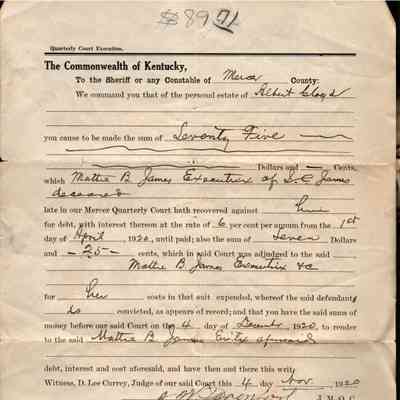 $89.71
Quarterly Court Execution.
The Commonwealth of Kentucky,
To the Sheriff or any Constable of Mercer County:
We command you that of the personal estate of Albert Cloyd
you cause to be made the sum of Seventy Five
Dollars and — Cents,
which Mattie B. James Executrix of S.C. James
deceased
late in our Mercer Quarterly Court hath recovered against him
for debt, with interest thereon at the rate of 6 per cent per annum from the 1st
day of April 1920, until paid; also the sum of seven Dollars
and -25- cents, which in said Court was adjudged to the said
Mattie B. James Executrix &c
for her costs in that suit expended, whereof the said defendant
is convicted, as appears of record; and that you have the said sums of
money before our said Court on the 4 day of December 1920, to render
to the said Mattie B. James Exrtx aforesaid
debt, interest and cost aforesaid, and have then and there this writ.
Witness, D. Lee Currey, Judge of our said Court this 4 day Nov. 1920
J. M. Q. C.